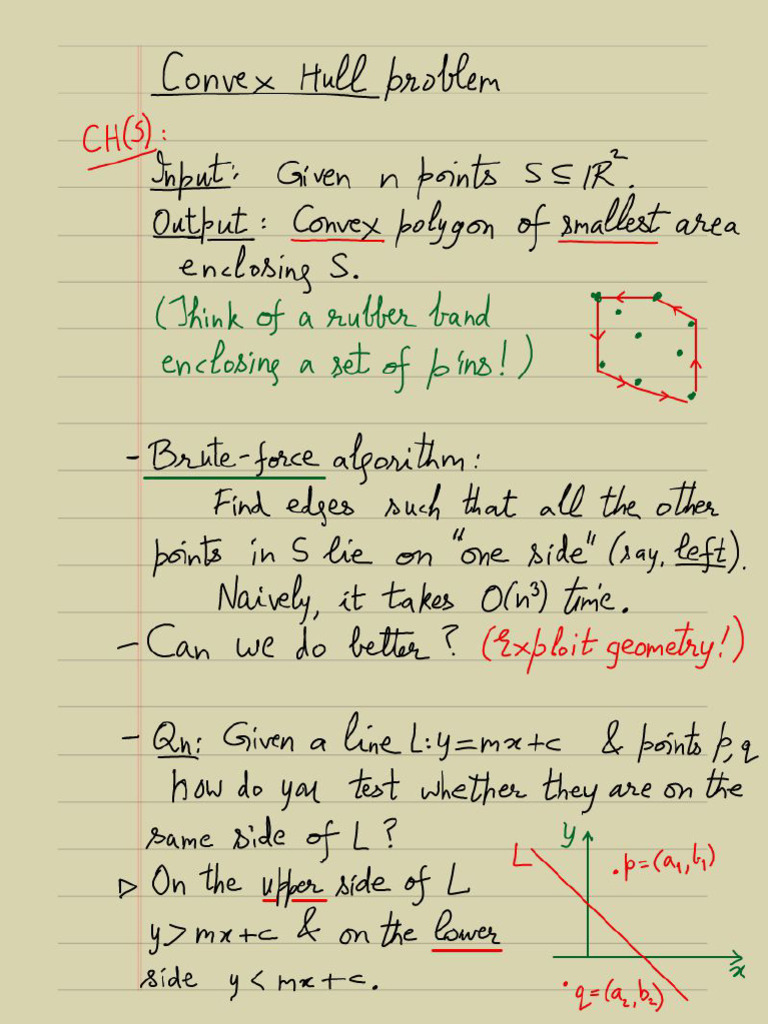 Convex Hull problem
CH(S):
Input: Given n points S ⊆ ℝ².
Output: Convex polygon of smallest area
enclosing S.
(Think of a rubber band
enclosing a set of pins!)
- Brute-force algorithm:
Find edges such that all the other
points in S lie on "one side" (say, left).
Naively, it takes O(n³) time.
- Can we do better? (Exploit geometry!)
- Qn: Given a line L: y=mx+c & points p, q
how do you test whether they are on the
same side of L?
▷ On the upper side of L
y > mx+c & on the lower
side y < mx+c.
y
L
p=(a₁,b₁)
x
q=(a₂,b₂)